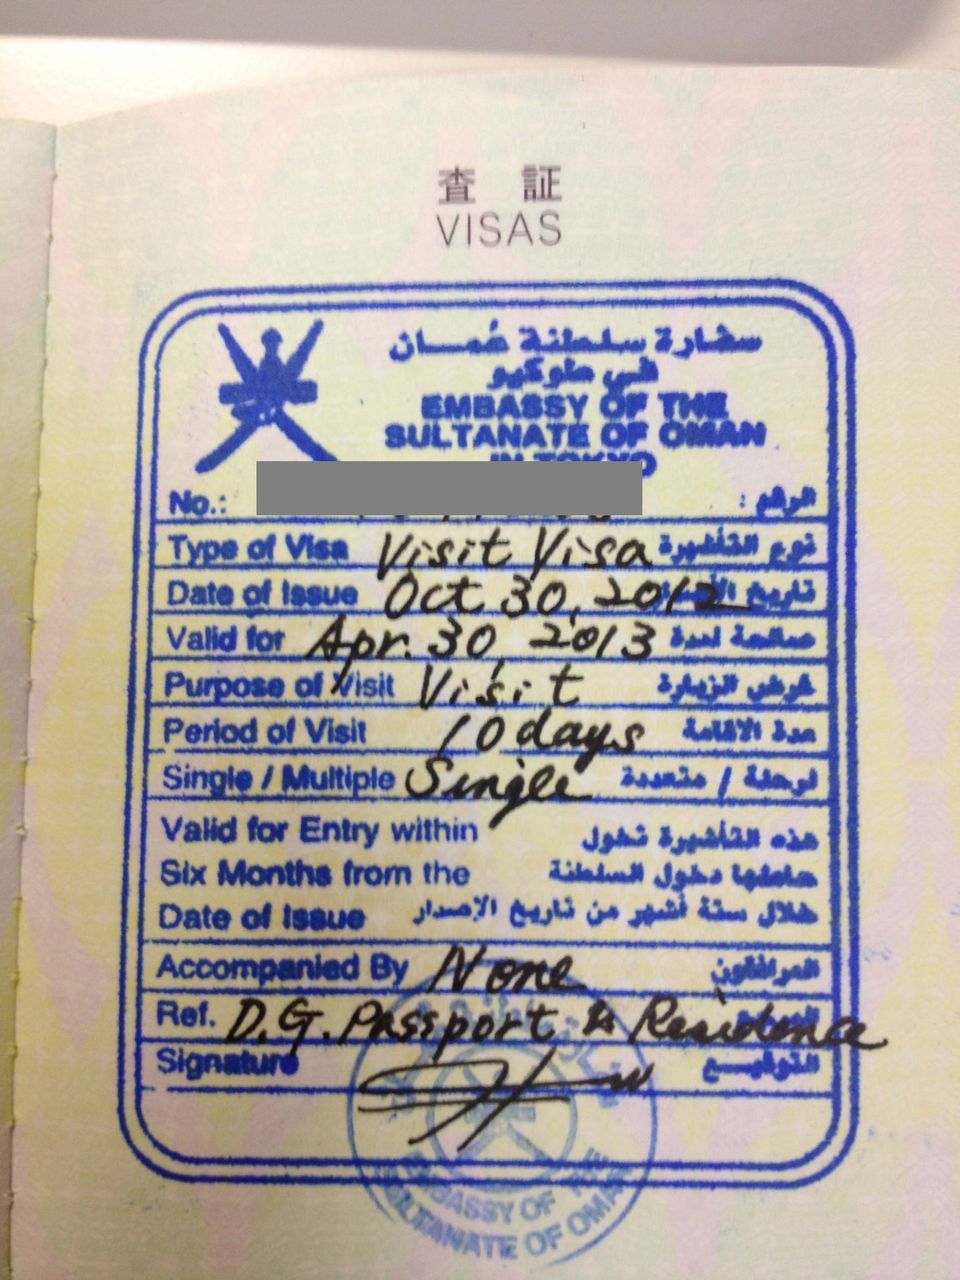 査 証
VISAS
سفارة سلطنة عُمـــان
في طوكيو
EMBASSY OF THE
SULTANATE OF OMAN
IN TOKYO
No.: الرقم :
Type of Visa Visit Visa نوع التأشيرة
Date of Issue Oct 30, 2012 تاريخ
Valid for Apr. 30, 2013 صالحة لمدة
Purpose of Visit Visit غرض الزيارة
Period of Visit 10 days مدة الاقامة
Single / Multiple Single لرحلة / متعددة
Valid for Entry within هذه التأشيرة تخول
Six Months from the حاملها دخول السلطنة
Date of Issue خلال ستة أشهر من تاريخ الإصدار
Accompanied By None المرافقون
Ref. D.G. Passport & Residence
Signature التوقيـــع
EMBASSY OF THE
SULTANATE OF OMAN